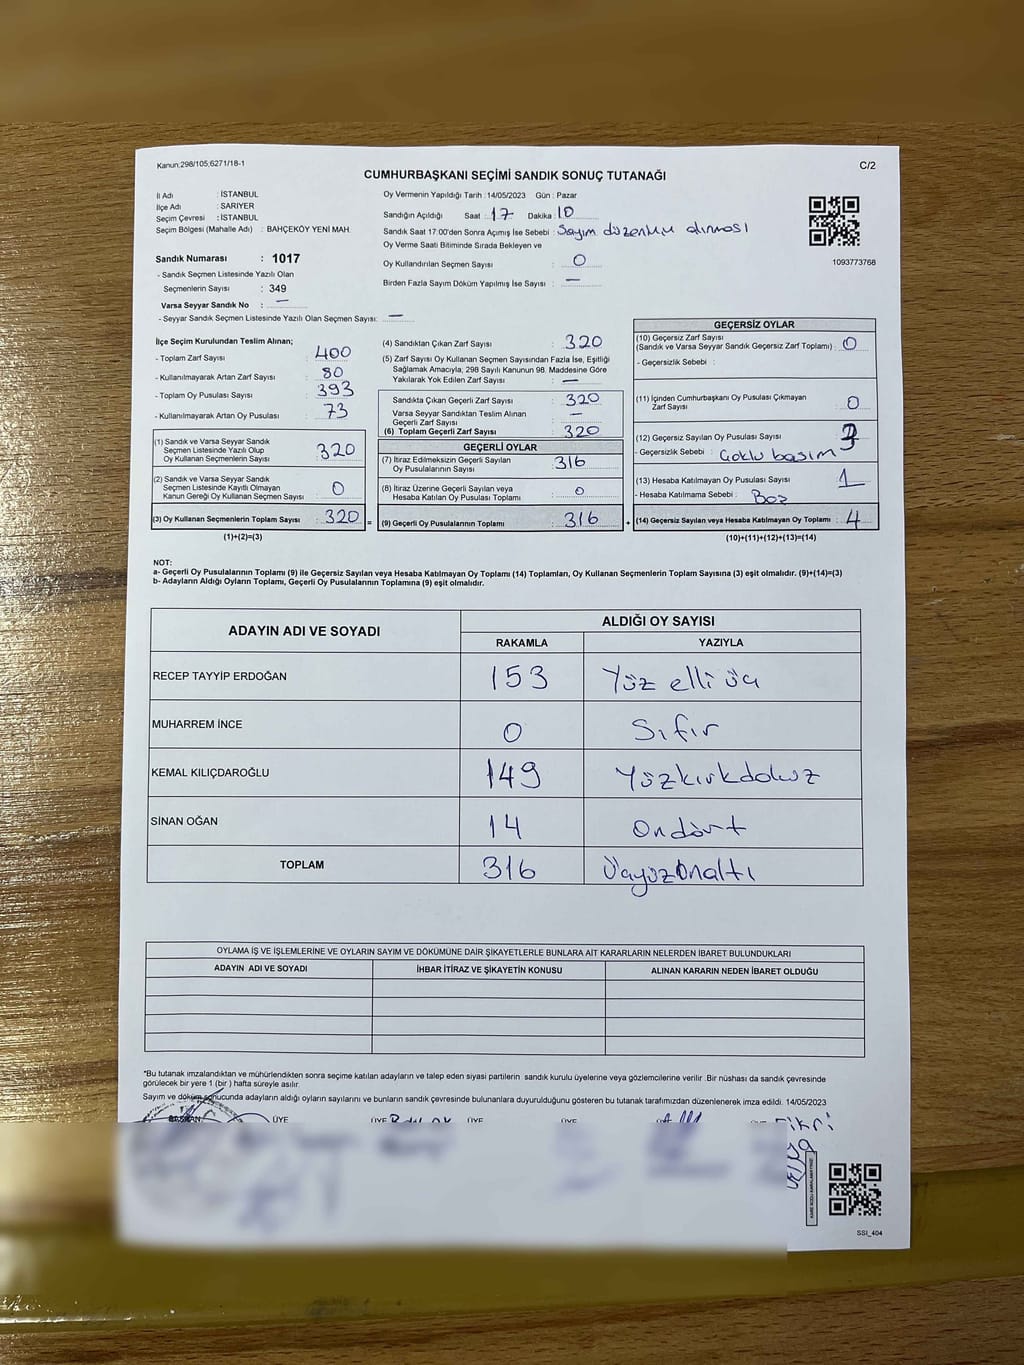 Kanun;298/105;6271/18-1
C/2
CUMHURBAŞKANI SEÇİMİ SANDIK SONUÇ TUTANAĞI
İl Adı : İSTANBUL
İlçe Adı : SARIYER
Seçim Çevresi : İSTANBUL
Seçim Bölgesi (Mahalle Adı) : BAHÇEKÖY YENİ MAH.
Oy Vermenin Yapıldığı Tarih : 14/05/2023 Gün : Pazar
Sandığın Açıldığı Saat : 17 Dakika : 10
Sandık Saat 17:00'den Sonra Açımış İse Sebebi : Sayım düzeninin alınması
Oy Verme Saati Bitiminde Sırada Bekleyen ve
Oy Kullandırılan Seçmen Sayısı : 0
Birden Fazla Sayım Döküm Yapılmış İse Sayısı : —
1093773768
Sandık Numarası : 1017
- Sandık Seçmen Listesinde Yazılı Olan
Seçmenlerin Sayısı : 349
Varsa Seyyar Sandık No : —
- Seyyar Sandık Seçmen Listesinde Yazılı Olan Seçmen Sayısı: —
İlçe Seçim Kurulundan Teslim Alınan;
- Toplam Zarf Sayısı : 400
- Kullanılmayarak Artan Zarf Sayısı : 80
- Toplam Oy Pusulası Sayısı : 393
- Kullanılmayarak Artan Oy Pusulası : 73
(1) Sandık ve Varsa Seyyar Sandık
Seçmen Listesinde Yazılı Olup
Oy Kullanan Seçmenlerin Sayısı : 320
(2) Sandık ve Varsa Seyyar Sandık
Seçmen Listesinde Kayıtlı Olmayan
Kanun Gereği Oy Kullanan Seçmen Sayısı : 0
(3) Oy Kullanan Seçmenlerin Toplam Sayısı : 320 =
(1)+(2)=(3)
(4) Sandıktan Çıkan Zarf Sayısı : 320
(5) Zarf Sayısı Oy Kullanan Seçmen Sayısından Fazla İse, Eşitliği
Sağlamak Amacıyla; 298 Sayılı Kanunun 98. Maddesine Göre
Yakılarak Yok Edilen Zarf Sayısı : —
Sandıkta Çıkan Geçerli Zarf Sayısı : 320
Varsa Seyyar Sandıktan Teslim Alınan
Geçerli Zarf Sayısı : —
(6) Toplam Geçerli Zarf Sayısı : 320
GEÇERLİ OYLAR
(7) İtiraz Edilmeksizin Geçerli Sayılan
Oy Pusulalarının Sayısı : 316
(8) İtiraz Üzerine Geçerli Sayılan veya
Hesaba Katılan Oy Pusulaları Toplamı : 0
(9) Geçerli Oy Pusulalarının Toplamı : 316 +
GEÇERSİZ OYLAR
(10) Geçersiz Zarf Sayısı
(Sandık ve Varsa Seyyar Sandık Geçersiz Zarf Toplamı) : 0
- Geçersizlik Sebebi :
(11) İçinden Cumhurbaşkanı Oy Pusulası Çıkmayan
Zarf Sayısı : 0
(12) Geçersiz Sayılan Oy Pusulası Sayısı : 3
- Geçersizlik Sebebi : Çoklu basım
(13) Hesaba Katılmayan Oy Pusulası Sayısı : 1
- Hesaba Katılmama Sebebi : Boş
(14) Geçersiz Sayılan veya Hesaba Katılmayan Oy Toplamı : 4
(10)+(11)+(12)+(13)=(14)
NOT:
a- Geçerli Oy Pusulalarının Toplamı (9) ile Geçersiz Sayılan veya Hesaba Katılmayan Oy Toplamı (14) Toplamları, Oy Kullanan Seçmenlerin Toplam Sayısına (3) eşit olmalıdır. (9)+(14)=(3)
b- Adayların Aldığı Oyların Toplamı, Geçerli Oy Pusulalarının Toplamına (9) eşit olmalıdır.
ADAYIN ADI VE SOYADI
ALDIĞI OY SAYISI
RAKAMLA YAZIYLA
RECEP TAYYİP ERDOĞAN 153 Yüz elli üç
MUHARREM İNCE 0 Sıfır
KEMAL KILIÇDAROĞLU 149 Yüzkırkdokuz
SİNAN OĞAN 14 Ondört
TOPLAM 316 Üçyüzonaltı
OYLAMA İŞ VE İŞLEMLERİNE VE OYLARIN SAYIM VE DÖKÜMÜNE DAİR ŞİKAYETLERLE BUNLARA AİT KARARLARIN NELERDEN İBARET BULUNDUKLARI
ADAYIN ADI VE SOYADI İHBAR İTİRAZ VE ŞİKAYETİN KONUSU ALINAN KARARIN NEDEN İBARET OLDUĞU
*Bu tutanak imzalandıktan ve mühürlendikten sonra seçime katılan adayların ve talep eden siyasi partilerin sandık kurulu üyelerine veya gözlemcilerine verilir .Bir nüshası da sandık çevresinde
görülecek bir yere 1 (bir ) hafta süreyle asılır.
Sayım ve döküm sonucunda adayların aldığı oyların sayılarını ve bunların sandık çevresinde bulunanlara duyurulduğunu gösteren bu tutanak tarafımızdan düzenlenerek imza edildi. 14/05/2023
BAŞKAN ÜYE ÜYE ÜYE ÜYE
Fikri
SSI_404